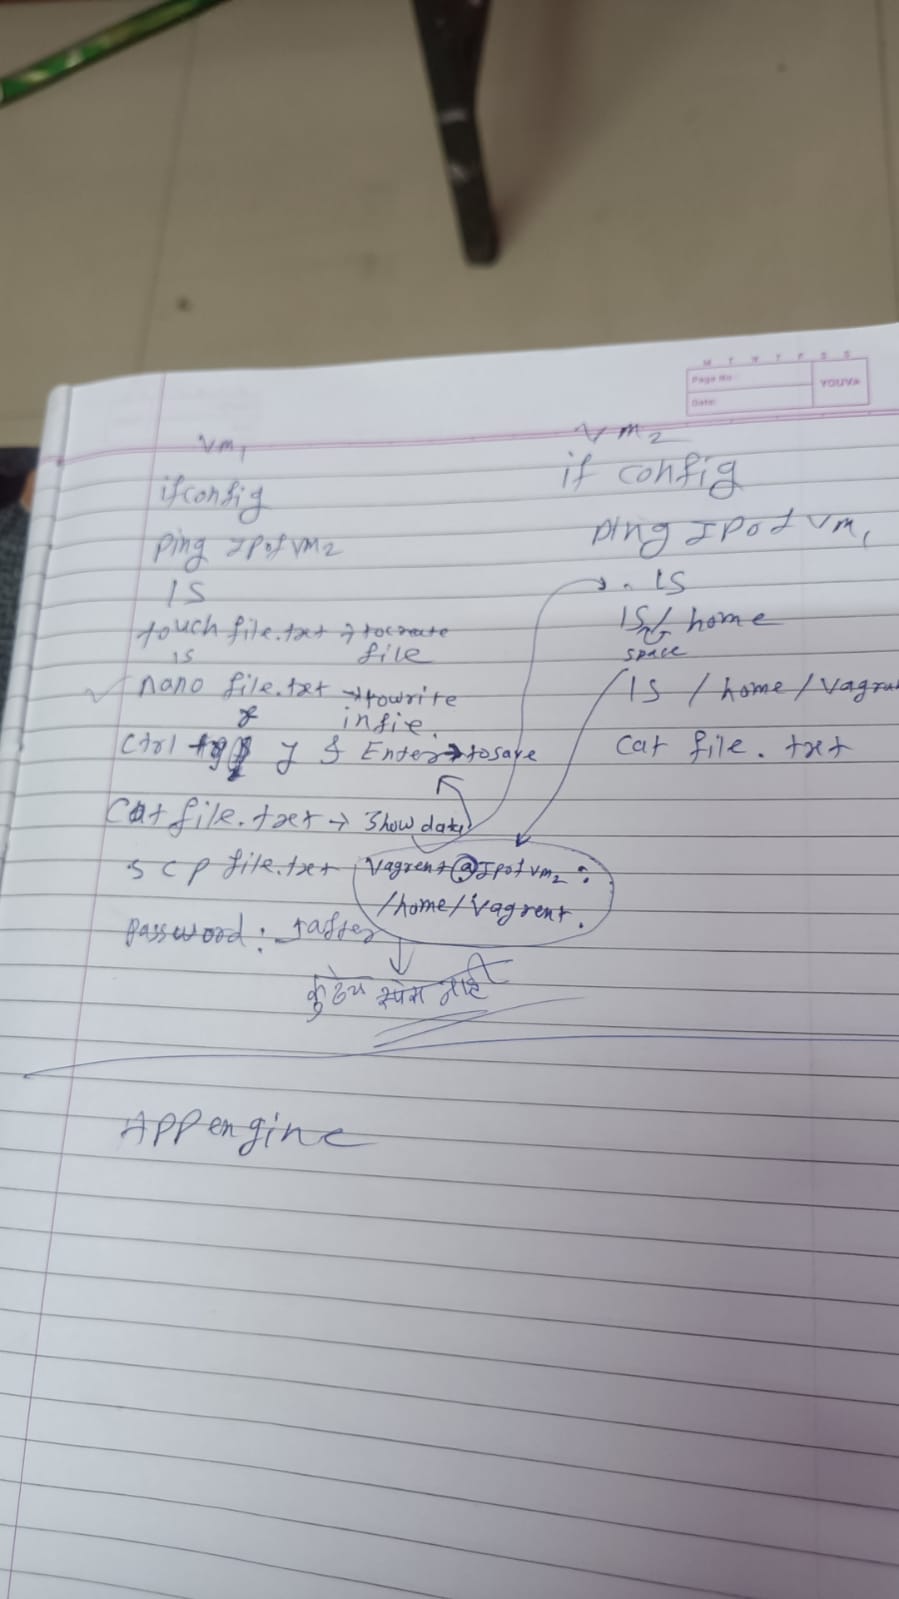 M T W T F S S
Page No.:
YOUVA
Date:
Vm1
ifconfig
ping IP of VM2
ls
touch file.txt → to create
file
ls
nano file.txt → to write
in fie.
Ctrl + y & Enter → to save
Cat file.txt → Show data
scp file.txt Vagrent@IP of vm2:
/home/Vagrent.
Password:
कुठेय स्पेस नाही
Vm2
if config
Ping IP of Vm1
ls
ls / home
space
ls /home/vagra
Cat file.txt
APP engine